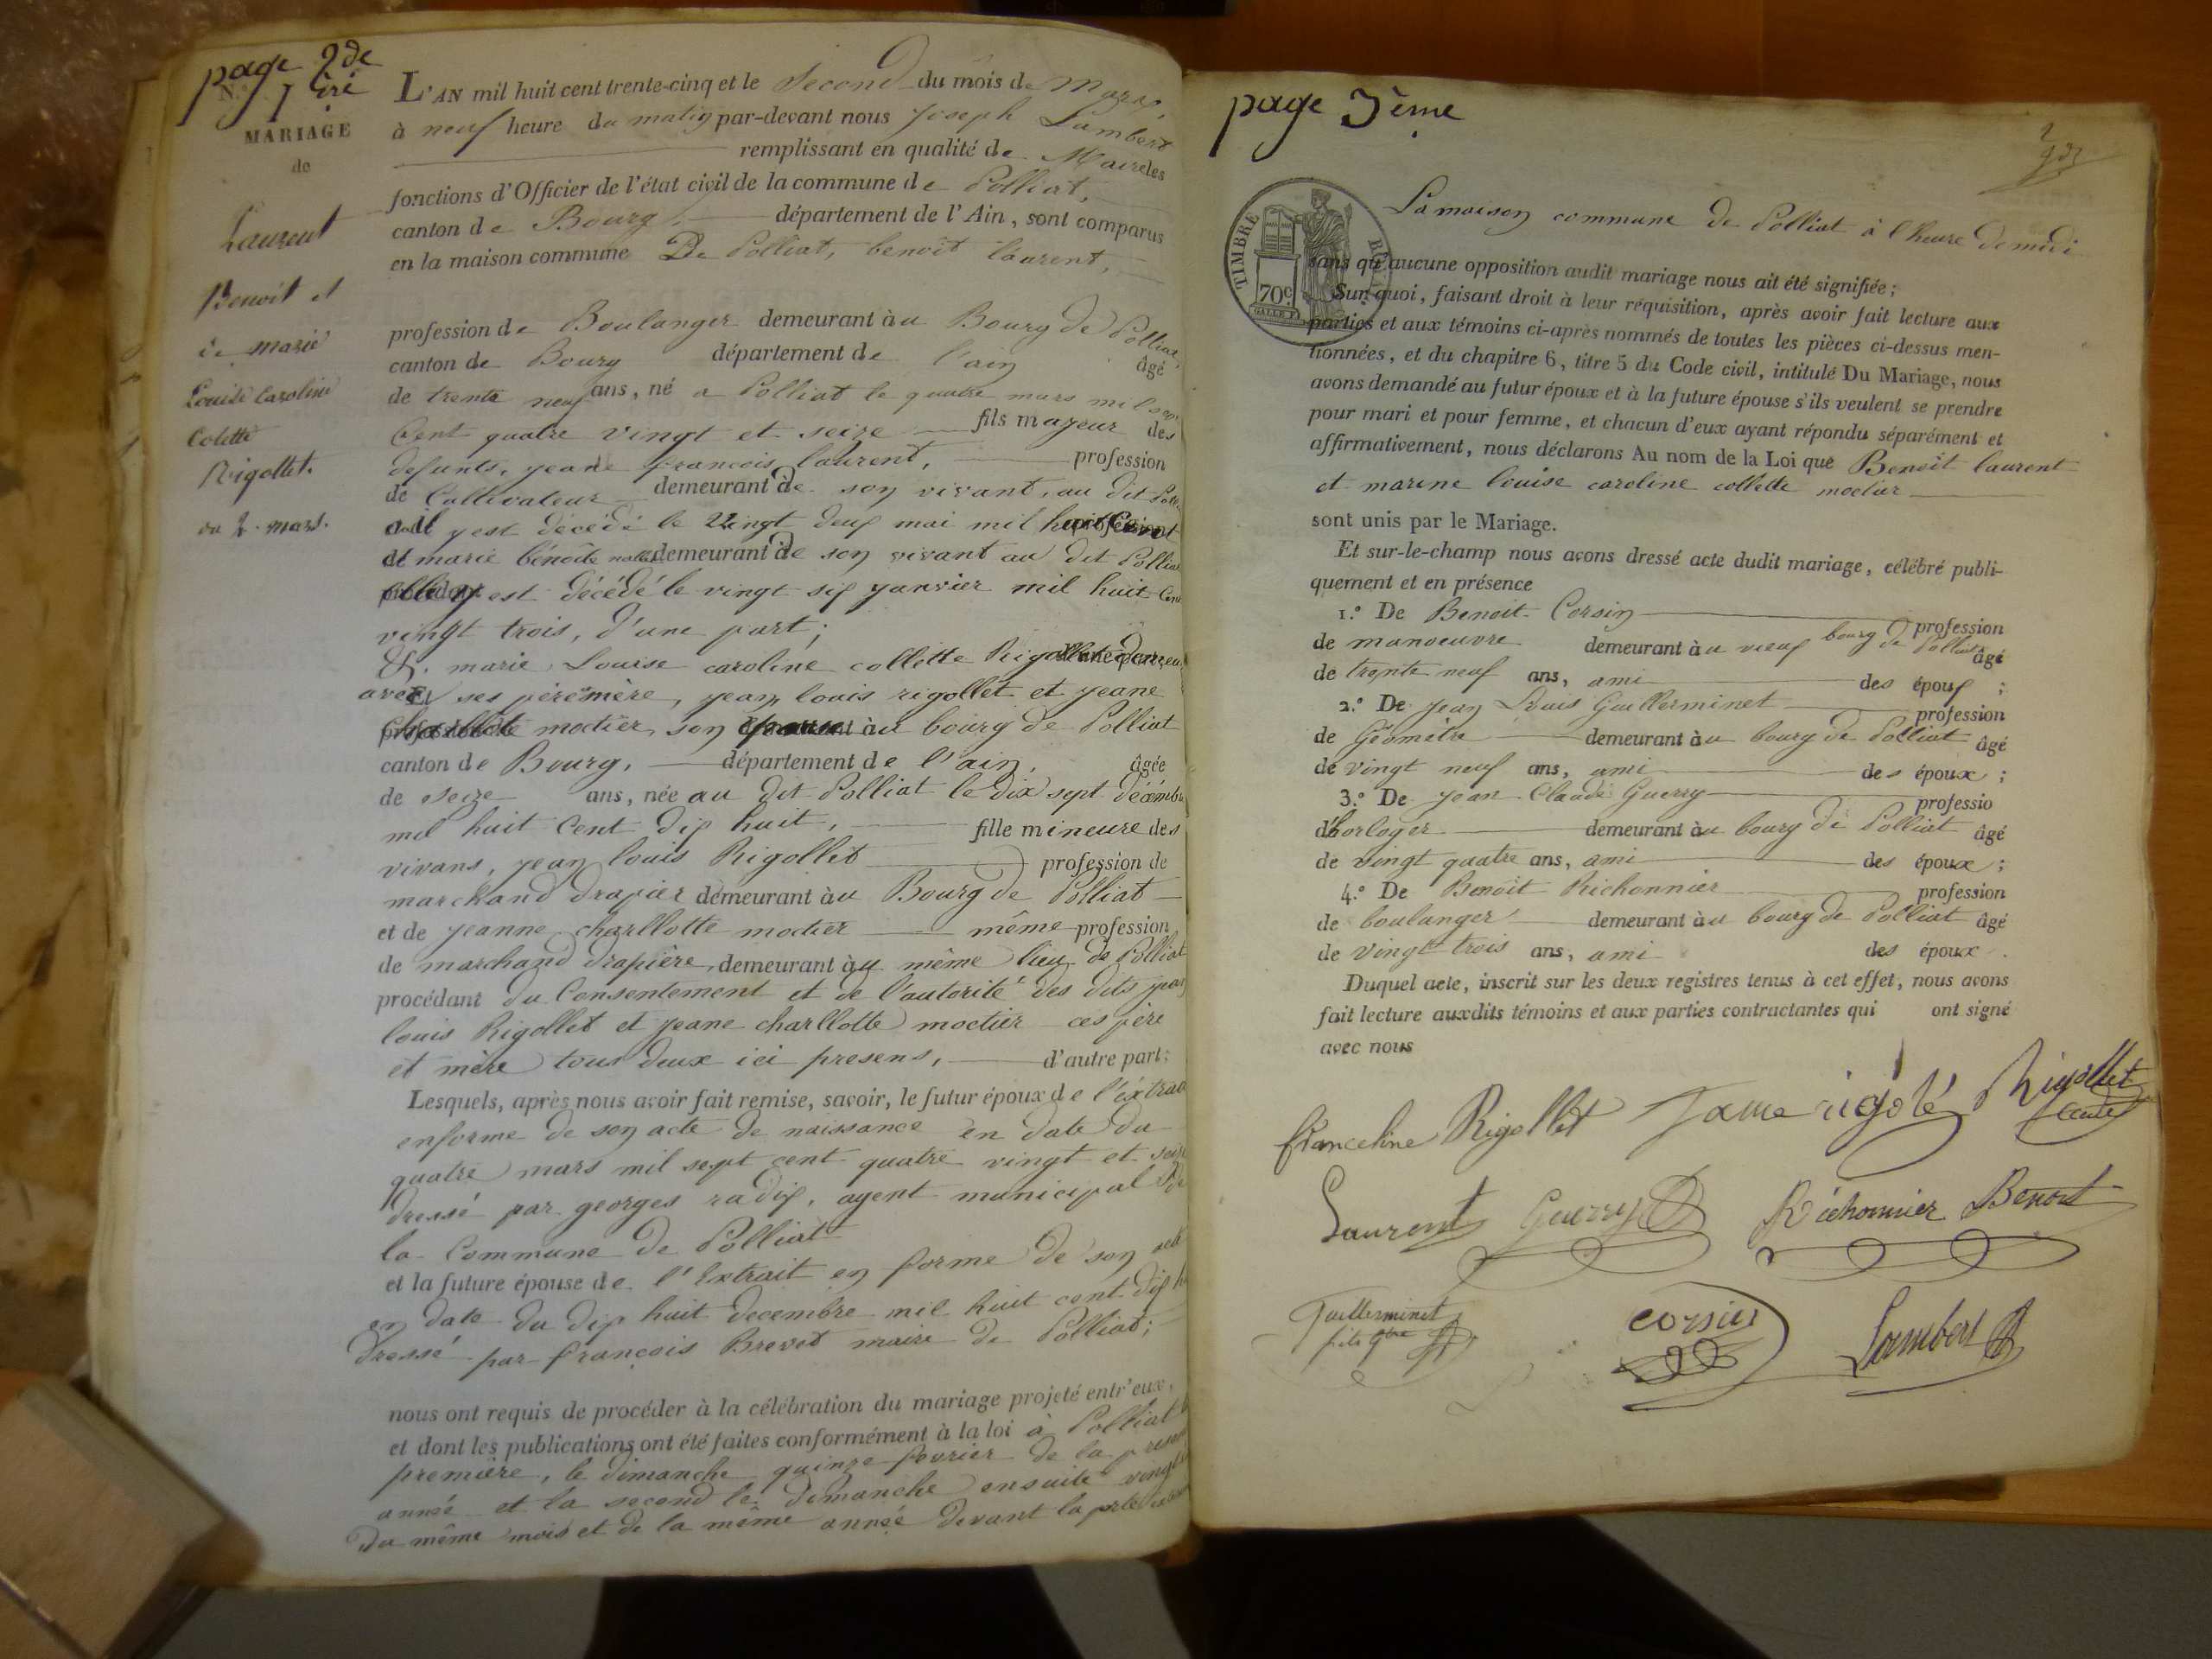 page 2de
N.° 1ère
MARIAGE
de
Laurent
Benoit et
de marie
Louise Caroline
Colette
Rigollet.
du 2. mars.
L'AN mil huit cent trente-cinq et le Second du mois de Mars,
à neuf heure du matin par-devant nous Joseph Lambert
remplissant en qualité de Maire les
fonctions d'Officier de l'état civil de la commune de Polliat,
canton de Bourg, département de l'Ain, sont comparus
en la maison commune De Polliat, benoit laurent,
profession de Boulanger demeurant à u Bourg de Polliat,
canton de Bourg département de l'ain âgé
de trente neuf ans, né a Polliat le quatre mars mil sept
Cent quatre vingt et seize fils mageur des
defunts, jeane francois laurent, profession
de Cultivateur demeurant à de son vivant, au dit Polliat
où il y est décédé le vingt deux mai mil huit Cent
et marie bénoite demeurant à de son vivant au dit Polliat
elle y est décédé le vingt six janvier mil huit Cent
vingt trois, d'une part;
Et. marie Louise caroline collette Rigollet
avec ses père mère, jean louis rigollet et jeane
Charllote moctier son épouse au bourg de Polliat
canton de Bourg, département de l'ain, âgée
de seize ans, née au dit Polliat le dix sept décembre
mil huit Cent dix huit, fille mineure des
vivans, jean louis Rigollet profession de
marchand drapier demeurant à u Bourg de Polliat
et de jeanne charllotte moctier même profession
de marchand drapière, demeurant à u même lieu de Polliat
procédant du Consentement et de l'autorité des dits jean
louis Rigollet et jeane charllotte moctier ces père
et mère tous deux ici presens, d'autre part:
Lesquels, après nous avoir fait remise, savoir, le futur époux de l'éxtrait
enforme de son acte de naissance en date du
quatre mars mil sept cent quatre vingt et seize
dressé par georges radix, agent municipal de
la Commune de Polliat
et la future épouse de l'Extrait en forme de son acte
en date du dix huit decembre mil huit cent dix huit
dressé par francois Brevet maire de Polliat;
nous ont requis de procéder à la célébration du mariage projeté entr'eux,
et dont les publications ont été faites conformément à la loi à Polliat la
première, le dimanche quinze fevrier de la presente
année et la second le dimanche ensuite vingt
du même mois et de la même année devant la porte
page 3ème
La maison commune de Polliat à l'heure de midi
TIMBRE ROYAL
70c
sans qu'aucune opposition audit mariage nous ait été signifiée;
Sur quoi, faisant droit à leur réquisition, après avoir fait lecture aux
parties et aux témoins ci-après nommés de toutes les pièces ci-dessus men-
tionnées, et du chapitre 6, titre 5 du Code civil, intitulé Du Mariage, nous
avons demandé au futur époux et à la future épouse s'ils veulent se prendre
pour mari et pour femme, et chacun d'eux ayant répondu séparément et
affirmativement, nous déclarons Au nom de la Loi que Benoit laurent
et marine louise caroline collette moctier
sont unis par le Mariage.
Et sur-le-champ nous avons dressé acte dudit mariage, célébré publi-
quement et en présence
1.° De Benoit Corsin profession
de manoeuvre demeurant à u vieux bourg de Polliat âgé
de trente neuf ans, ami des époux ;
2.° De jean Louis Guillerminet profession
de Géomètre demeurant à u bourg de Polliat âgé
de vingt neuf ans, ami des époux ;
3.° De jean Claude Guerry professio
d'horloger demeurant à u bourg de Polliat âgé
de vingt quatre ans, ami des époux ;
4.° De Benoit Richonnier profession
de boulanger demeurant à u bourg de Polliat âgé
de vingt trois ans, ami des époux .
Duquel acte, inscrit sur les deux registres tenus à cet effet, nous avons
fait lecture auxdits témoins et aux parties contractantes qui ont signé
avec nous
franceline Rigollet Rigollet
Laurent Guerry Richonnier Benoit
Guillerminet
fils corsin Lambert